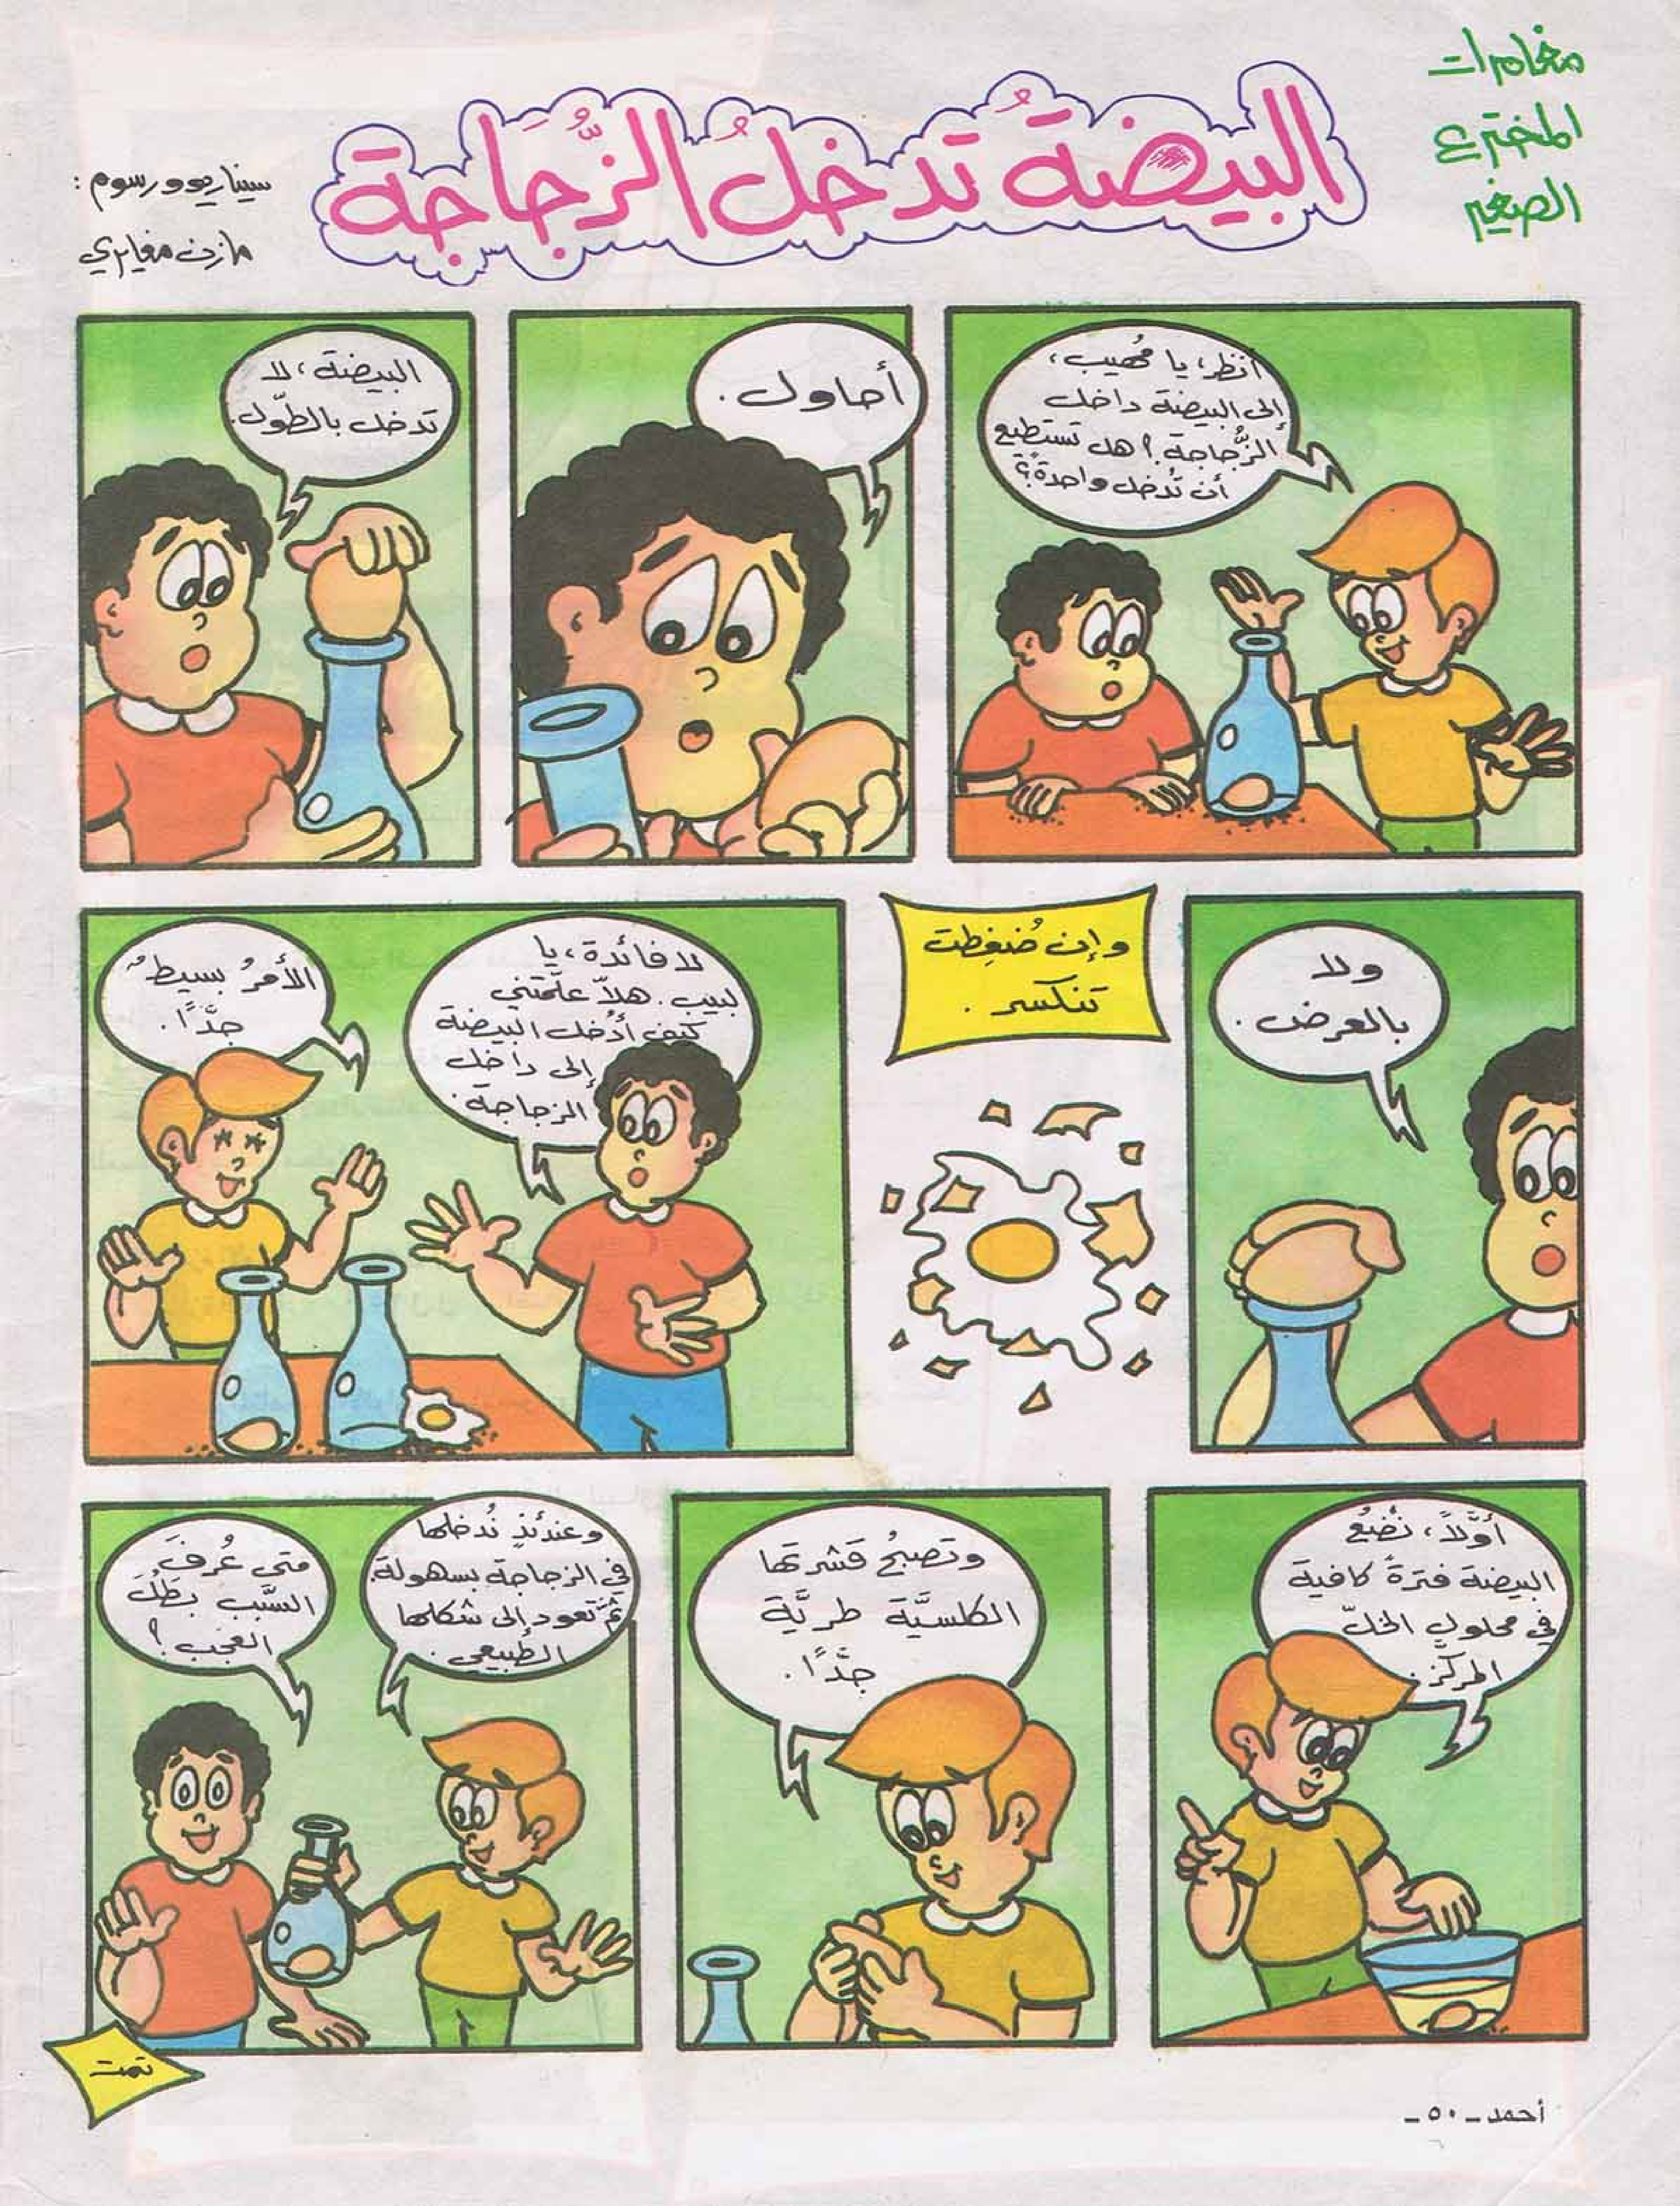 مغامرات
المخترع
الصغير
البيضةُ تدخلُ الزُّجَاجة
سيناريو ورسوم :
مازن مغايري
أنظر، يا مُهيب،
إلى البيضة داخل
الزُّجاجة؟ هل تستطيع
أن تُدخل واحدةً؟
أحاول.
البيضة، لا
تدخل بالطّول.
ولا
بالعرض.
وإن ضُغِطت
تنكسر.
لا فائدة، يا
لبيب. هلاّ علّمتني
كيف أُدخل البيضة
إلى داخل
الزجاجة.
الأمرُ بسيطٌ
جدًّا.
أوَّلاً، نَضَعُ
البيضة فترةً كافية
في محلولِ الخلّ
المركّز.
وتصبحُ قشرتها
الكلسيَّة طريَّة
جدًّا.
وعندئذٍ نُدخلها
في الزجاجة بسهولة.
ثمَّ تعود إلى شكلها
الطبيعي.
متى عُرفَ
السَّبب بَطَلَ
العَجب؟
تمت
أحمد - ٥٠ -